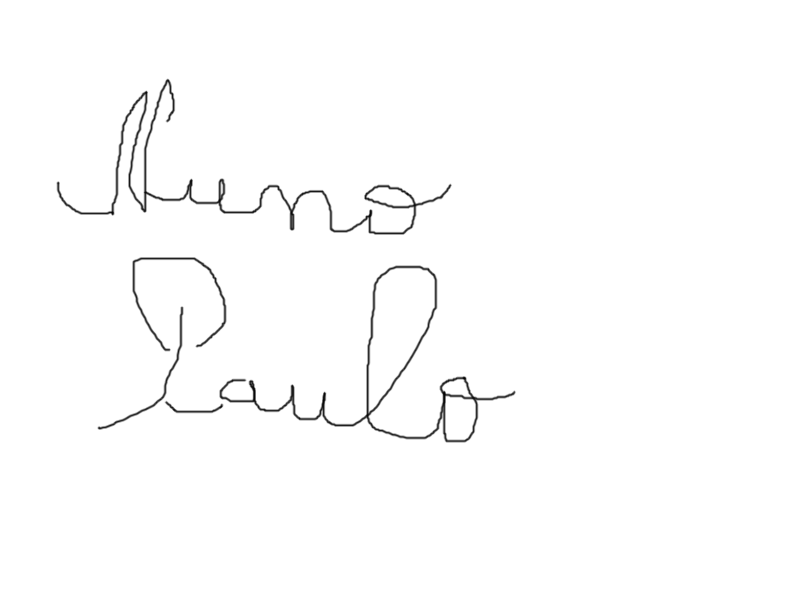 Nuno
Paulo